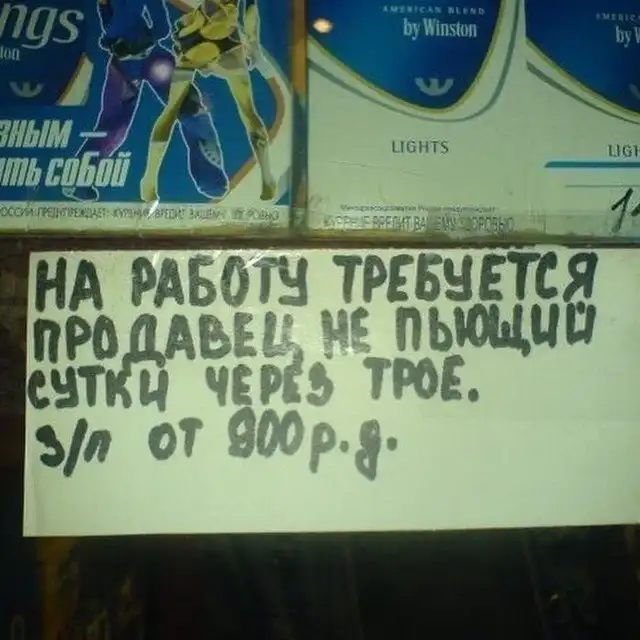 ngs
ton
AMERICAN BLEND
by Winston
by W
LIGHTS
LIGH
ЗНЫМ –
ТЬ СОБОЙ
ОССИИ ПРЕДУПРЕЖДАЕТ: КУРЕНИЕ ВРЕДИТ ВАШЕМУ ЗДОРОВЬЮ
КУРЕНИЕ ВРЕДИТ ВАШЕМУ ЗДОРОВЬЮ
НА РАБОТУ ТРЕБУЕТСЯ
ПРОДАВЕЦ НЕ ПЬЮЩИЙ
СУТКИ ЧЕРЕЗ ТРОЕ.
З/П ОТ 900 р.д.